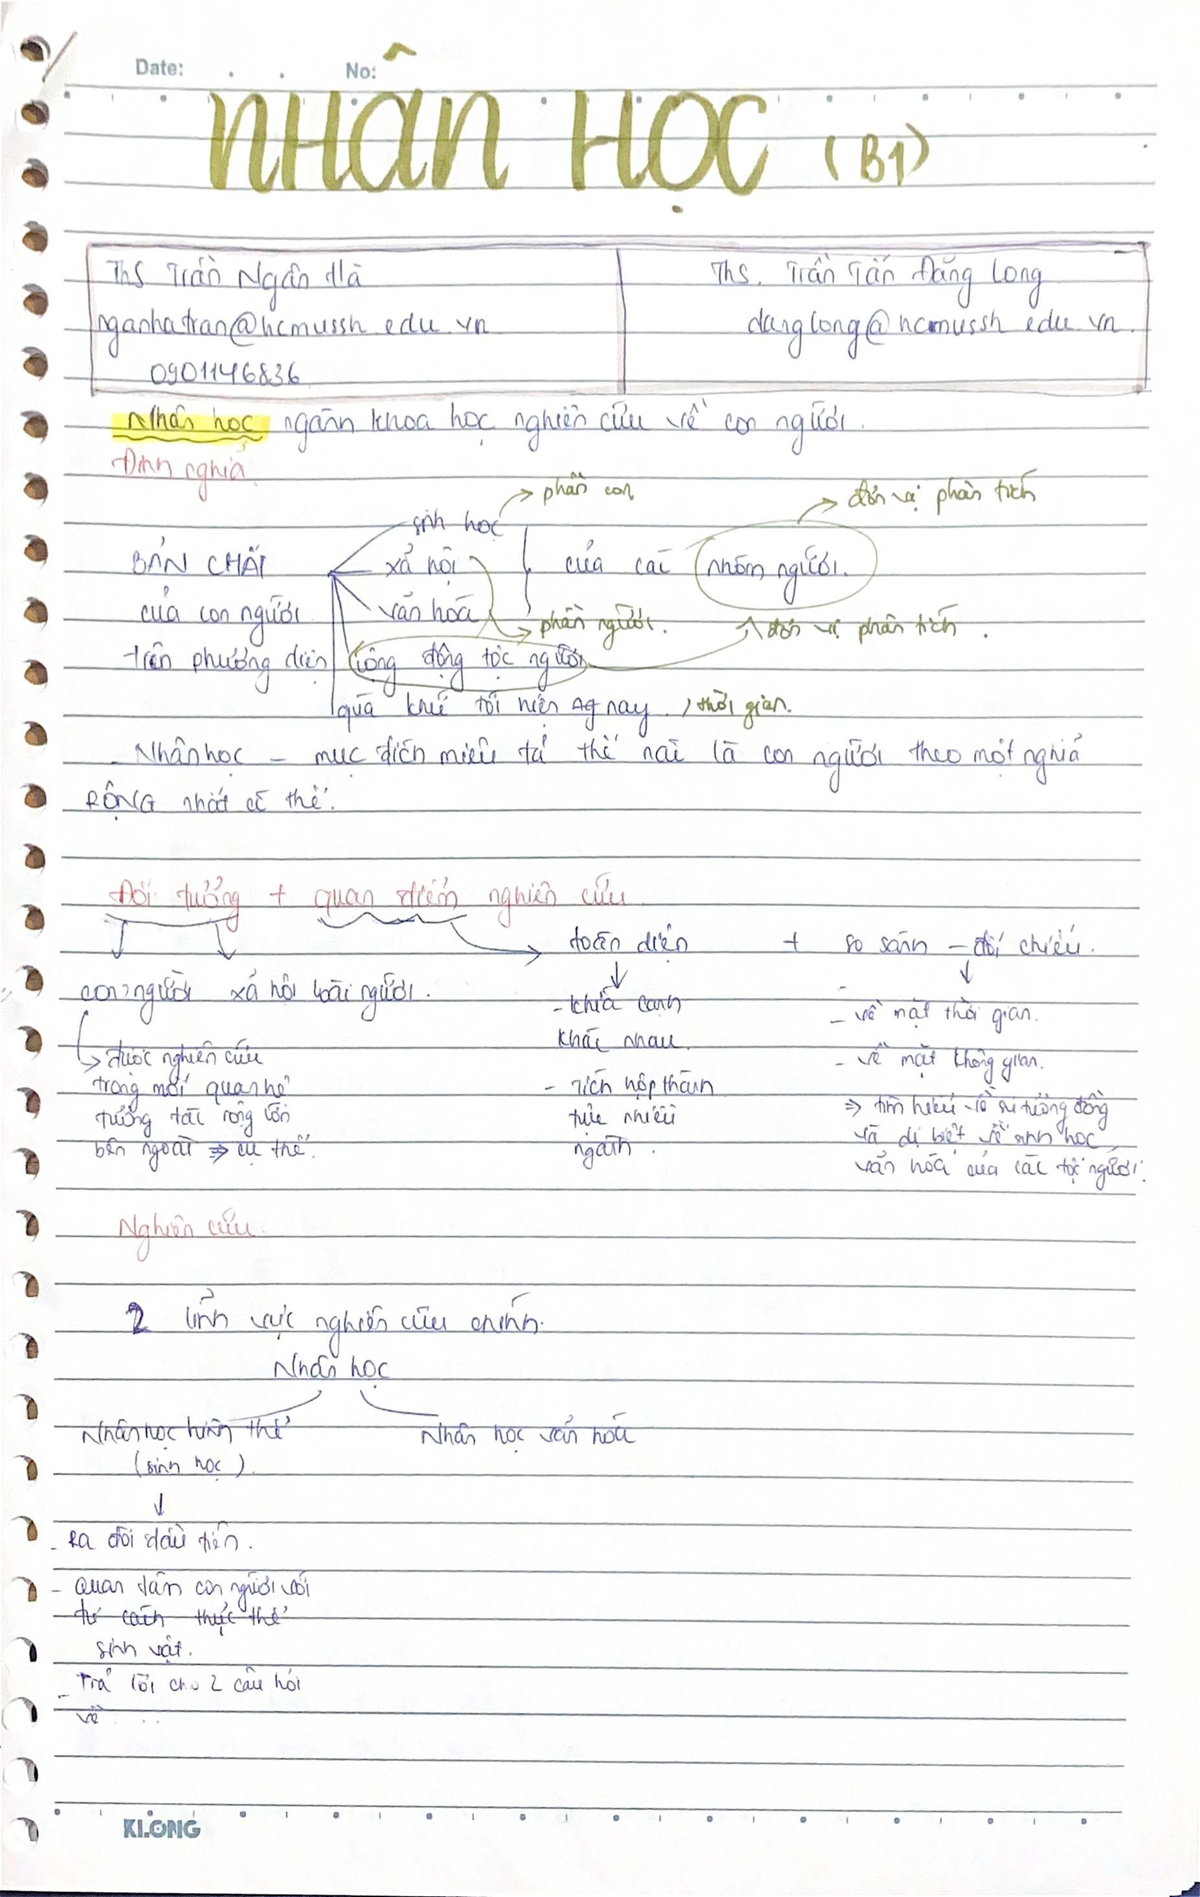 Date: . . No:
NHÂN HỌC (B1)
ThS Trần Ngân Hà
nganhatran@hcmussh edu vn
0901146836
ThS. Trần Tấn Đăng Long
danglong@hcmussh edu vn.
Nhân học ngành khoa học nghiên cứu về con người.
Định nghĩa
→ phần con
→ đơn vị phân tích
BẢN CHẤT
của con người
trên phương diện
sinh học
xã hội
văn hoá
của các nhóm người.
→ phần người.
→ đơn vị phân tích.
cộng động tộc người
quá khứ tới hiện nay, thời gian.
- Nhân học - mục đích miêu tả thế nào là con người theo một nghĩa
RỘNG nhất có thể.
Đối tượng + quan điểm nghiên cứu
→ toàn diện + so sánh - đối chiếu.
con người xã hội loài người.
→ được nghiên cứu
trong mối quan hệ
tương tác rộng lớn
bên ngoài ⇒ cụ thể.
- khía cạnh
khác nhau.
- tích hợp thành
tựu nhiều
ngành.
- về mặt thời gian.
- về mặt không gian.
⇒ tìm hiểu về sự tương đồng
và dị biệt về sinh học
văn hóa của các tộc người.
Nghiên cứu.
2 lĩnh vực nghiên cứu chính.
Nhân học
Nhân học hình thể
(sinh học).
Nhân học văn hoá
- Ra đời đầu tiên.
- Quan tâm con người với
tư cách thực thể
sinh vật.
- Trả lời cho 2 câu hỏi
về ...
KLONG